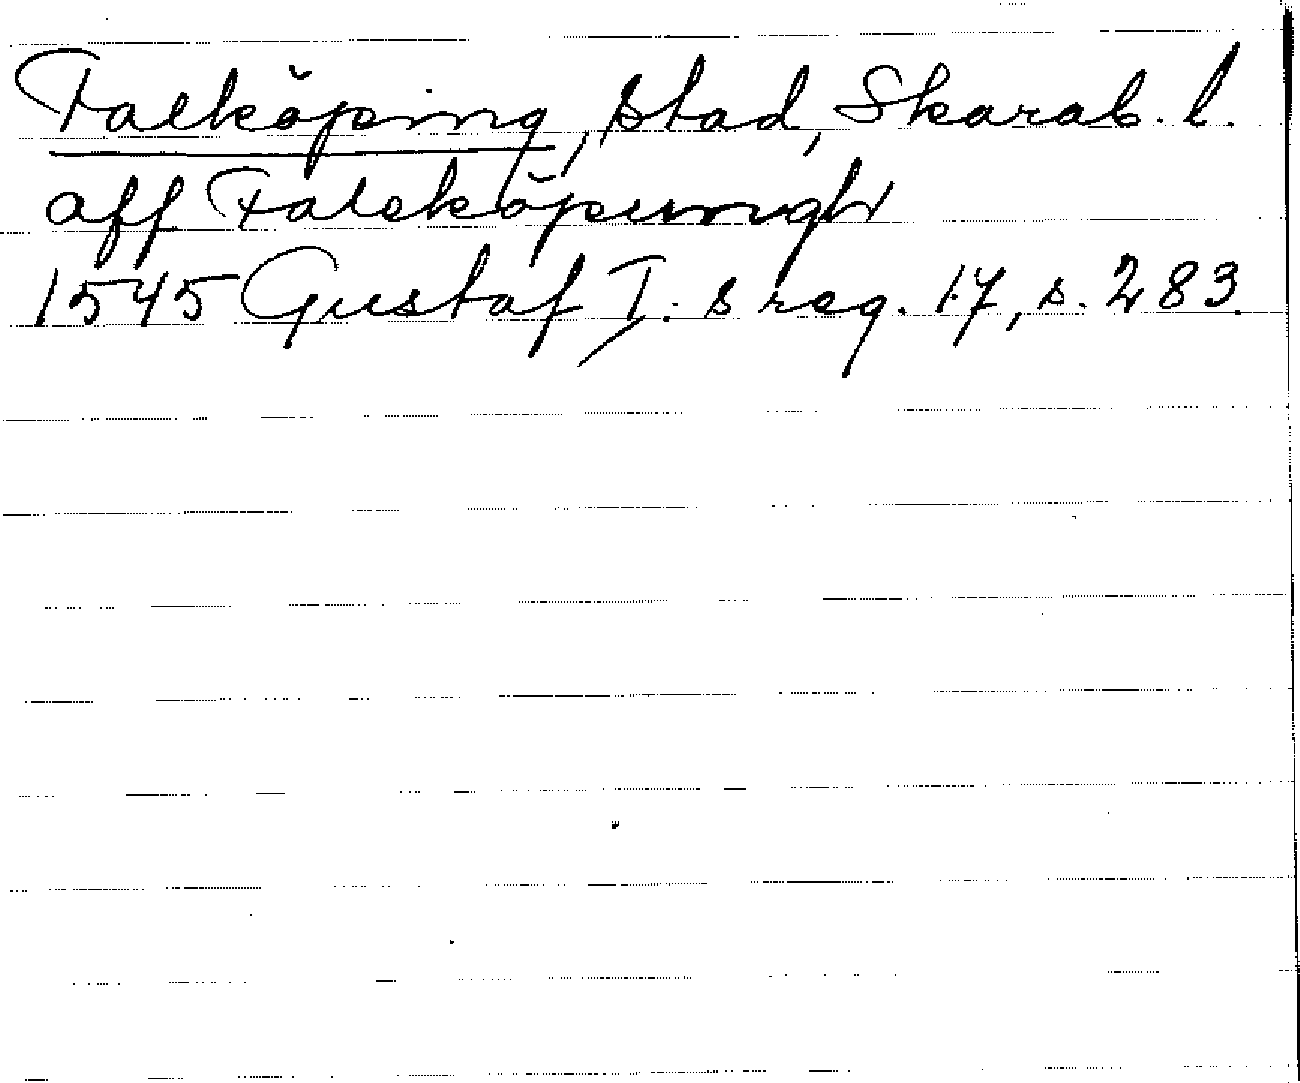 Falköping, stad, Skarab. l.
aff Faleköpungh
1545 Gustaf I:s reg. 17, s. 283.